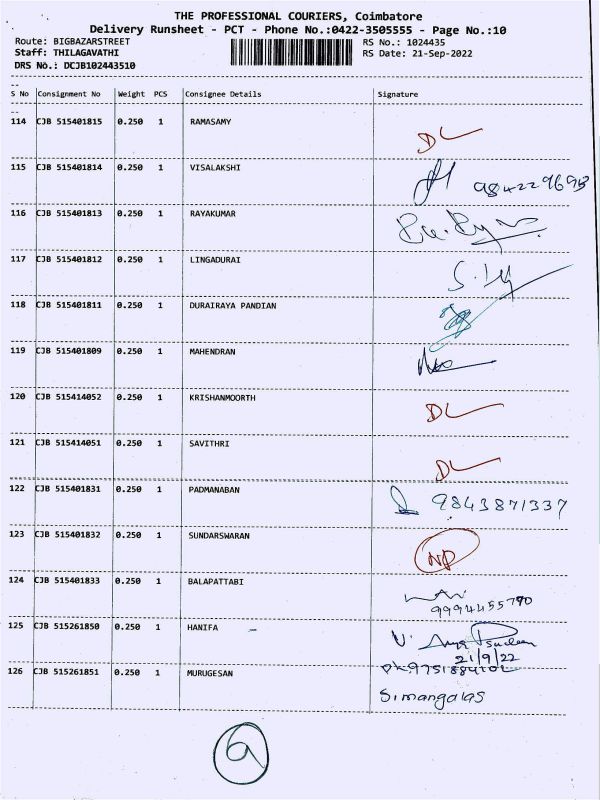 THE PROFESSIONAL COURIERS, Coimbatore
Delivery Runsheet - PCT - Phone No.:0422-3505555 - Page No.:10
Route: BIGBAZARSTREET RS No.: 1024435
Staff: THILAGAVATHI RS Date: 21-Sep-2022
DRS No.: DCJB102443510
S No Consignment No Weight PCS Consignee Details Signature
114 CJB 515401815 0.250 1 RAMASAMY DL
115 CJB 515401814 0.250 1 VISALAKSHI
116 CJB 515401813 0.250 1 RAYAKUMAR
117 CJB 515401812 0.250 1 LINGADURAI
118 CJB 515401811 0.250 1 DURAIRAYA PANDIAN
119 CJB 515401809 0.250 1 MAHENDRAN
120 CJB 515414052 0.250 1 KRISHANMOORTH DL
121 CJB 515414051 0.250 1 SAVITHRI DL
122 CJB 515401831 0.250 1 PADMANABAN 9843871337
123 CJB 515401832 0.250 1 SUNDARSWARAN ND
124 CJB 515401833 0.250 1 BALAPATTABI
9994455790
125 CJB 515261850 0.250 1 HANIFA
21/9/22
126 CJB 515261851 0.250 1 MURUGESAN
Simangalas